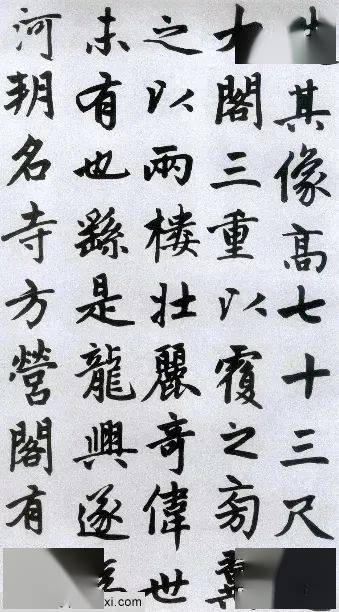 其像高七十三尺
閣三重以覆之旁
之以兩樓壯麗奇偉世
未有也繇是龍興遂
河朔名寺方營閣有
xi.com